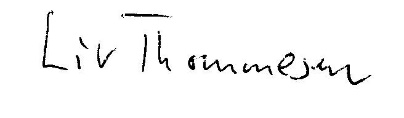 Liv Thommesen